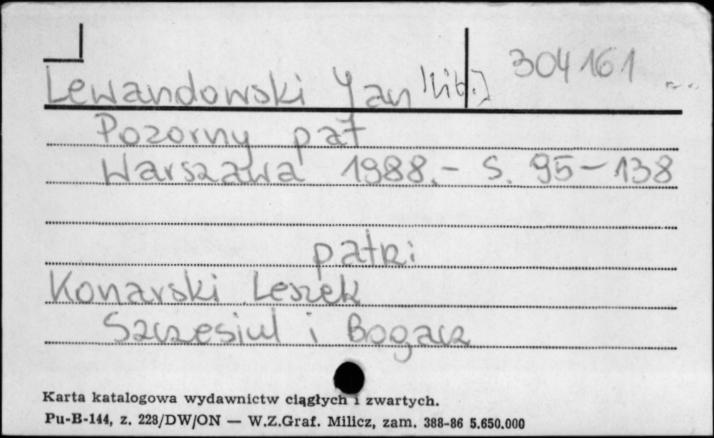 304161
Lewandowski Jan [lit.]
Pozorny pat
Warszawa 1988.- S. 95-138
patrz:
Konarski Leszek
Szczęsiul i Bogacz
Karta katalogowa wydawnictw ciągłych i zwartych.
Pu-B-144, z. 228/DW/ON — W.Z.Graf. Milicz, zam. 388-86 5.650.000